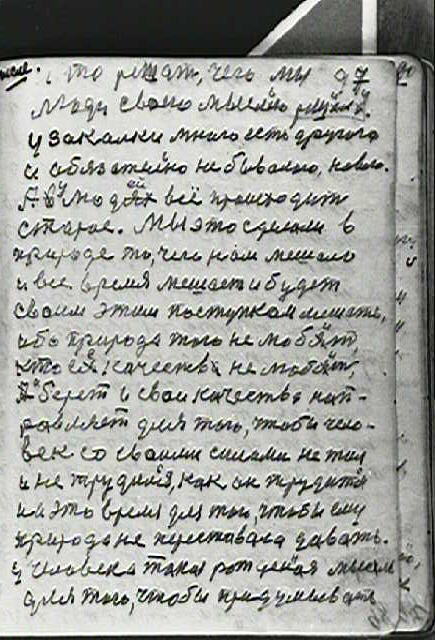 и то решат, чего мы 97
Люди своею мыслею
У закалки много есть другого
и обязательно небывалого, нового.
А в людях всё происходит
старое. Мы это сделали в
природе то, чего нам мешало
и все время мешает и будет
своим этим поступкам мешать,
ибо природа того не любят,
кто ея качества не любят.
А берет и свои качества нап-
равляет для того, чтобы чело-
век со своими силами не
и не трудился, как он трудится
на это время для того, чтобы ему
природа не переставала давать.
У человека такая рожденая мысля
для того, чтобы придумывать